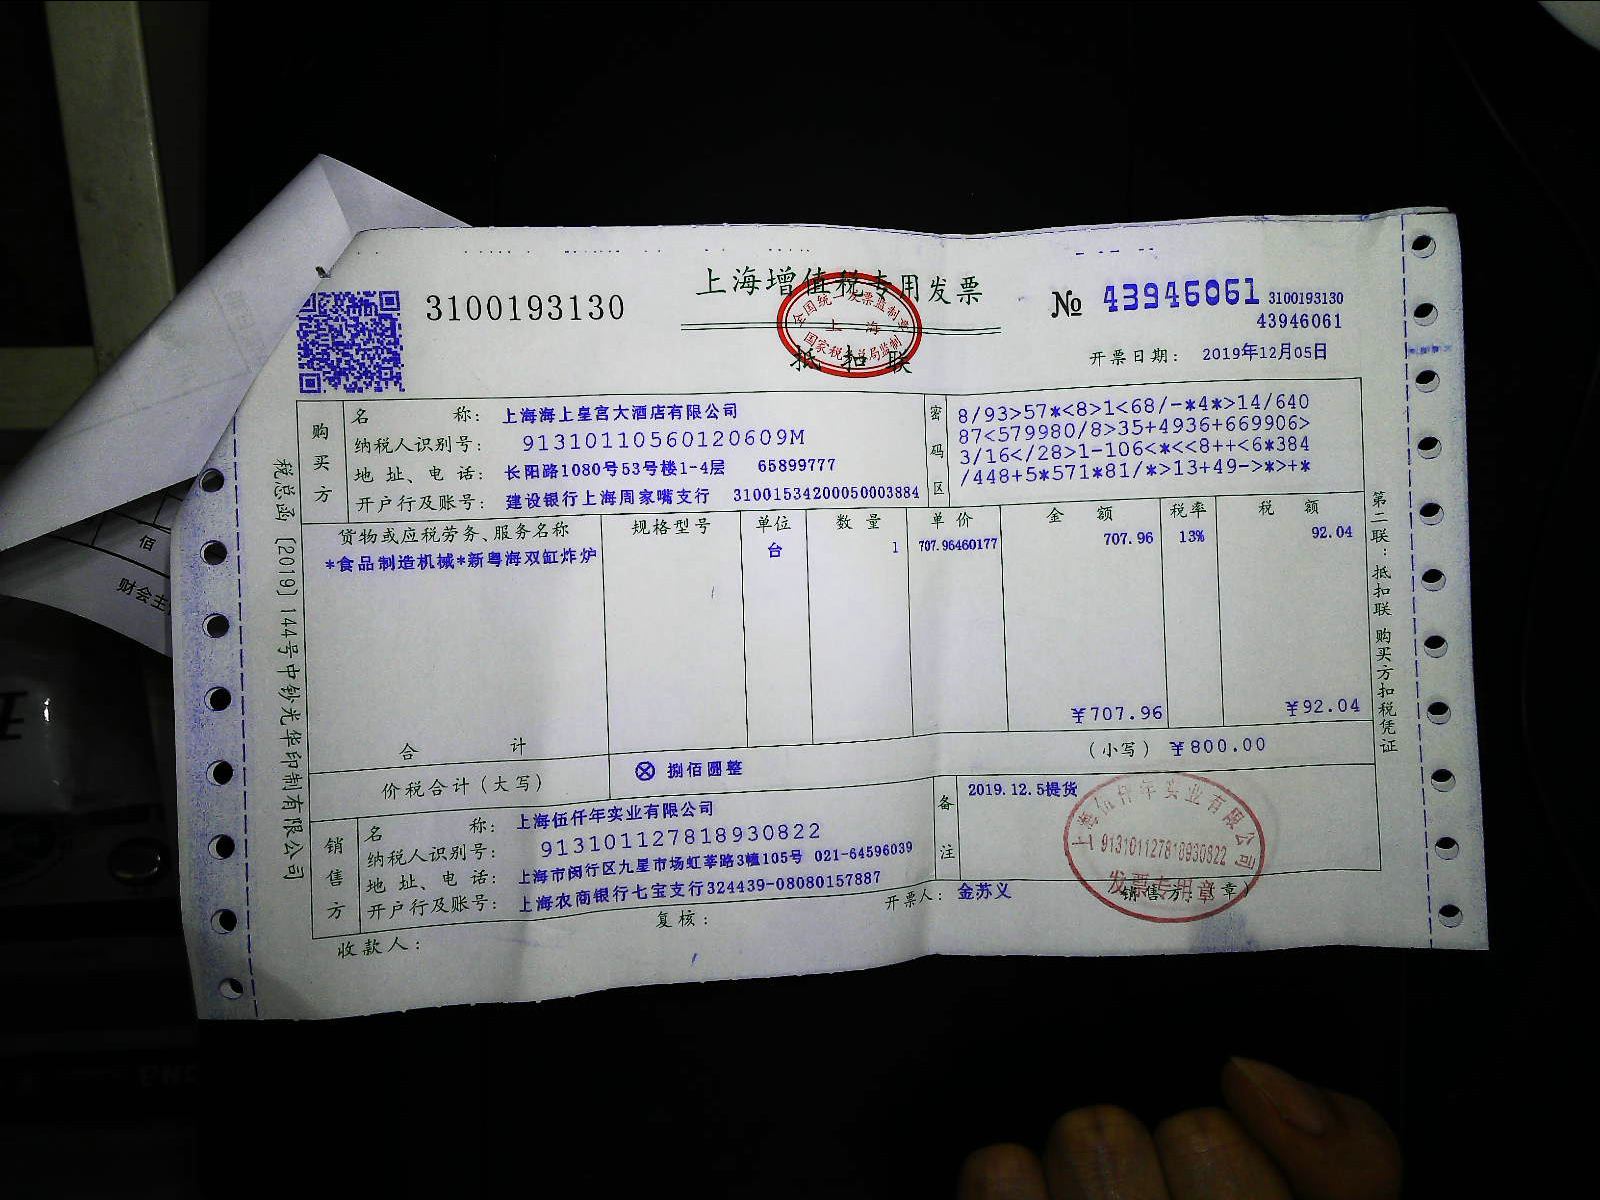 上海增值税专用发票
抵扣联
3100193130
№ 43946061
3100193130
43946061
开票日期: 2019年12月05日
全国统一发票监制章
上海
国家税务总局监制
购买方
名 称: 上海海上皇宫大酒店有限公司
纳税人识别号: 91310110560120609M
地 址、电 话: 长阳路1080号53号楼1-4层 65899777
开户行及账号: 建设银行上海周家嘴支行 31001534200050003884
密码区
8/93>57*<8>1<68/-*4*>14/640
87<579980/8>35+4936+669906>
3/16</28>1-106<*<<8++<6*384
/448+5*571*81/*>13+49->*>+*
货物或应税劳务、服务名称 规格型号 单位 数 量 单 价 金 额 税率 税 额
*食品制造机械*新粤海双缸炸炉 台 1 707.96460177 707.96 13% 92.04
合 计 ¥707.96 ¥92.04
价税合计(大写) ⊗ 捌佰圆整 (小写) ¥800.00
销售方
名 称: 上海伍仟年实业有限公司
纳税人识别号: 913101127818930822
地 址、电 话: 上海市闵行区九星市场虹莘路3幢105号 021-64596039
开户行及账号: 上海农商银行七宝支行324439-08080157887
备注
2019.12.5提货
上海伍仟年实业有限公司
913101127818930822
发票专用章
收款人:
复核:
开票人: 金苏义
销售方:(章)
税总函〔2019〕144号中钞光华印制有限公司
第二联:抵扣联 购买方扣税凭证
佰
财会主